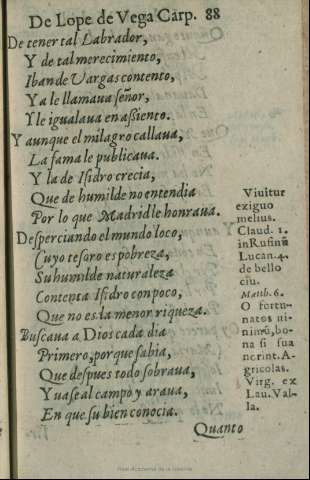 De Lope de Vega Carp. 88
De tener tal Labrador,
Y de tal merecimiento,
Iban de Vargas contento,
Ya le llamaua señor,
Y le igualaua en assiento.
Y aunque el milagro callaua,
La fama le publicaua.
Y la de Isidro crecia,
Que de humilde no entendia
Por lo que Madrid le honraua.
Desperciando el mundo loco,
Cuyo tesoro es pobreza,
Su humilde naturaleza
Contenta Isidro con poco,
Que no es la menor riqueza.
Buscaua a Dios cada dia
Primero, porque sabia,
Que despues todo sobraua,
Yuase al campo y araua,
En que su bien conocia.
Viuitur
exiguo
melius.
Claud. 1.
in Rufinũ
Lucan. 4.
de bello
ciu.
Matth. 6.
O fortu-
natos ni-
nimũ, bo-
na si sua
nerint. A-
gricolas.
Virg. ex
Lau. Val-
la.
Quanto
Real Academia de la Historia